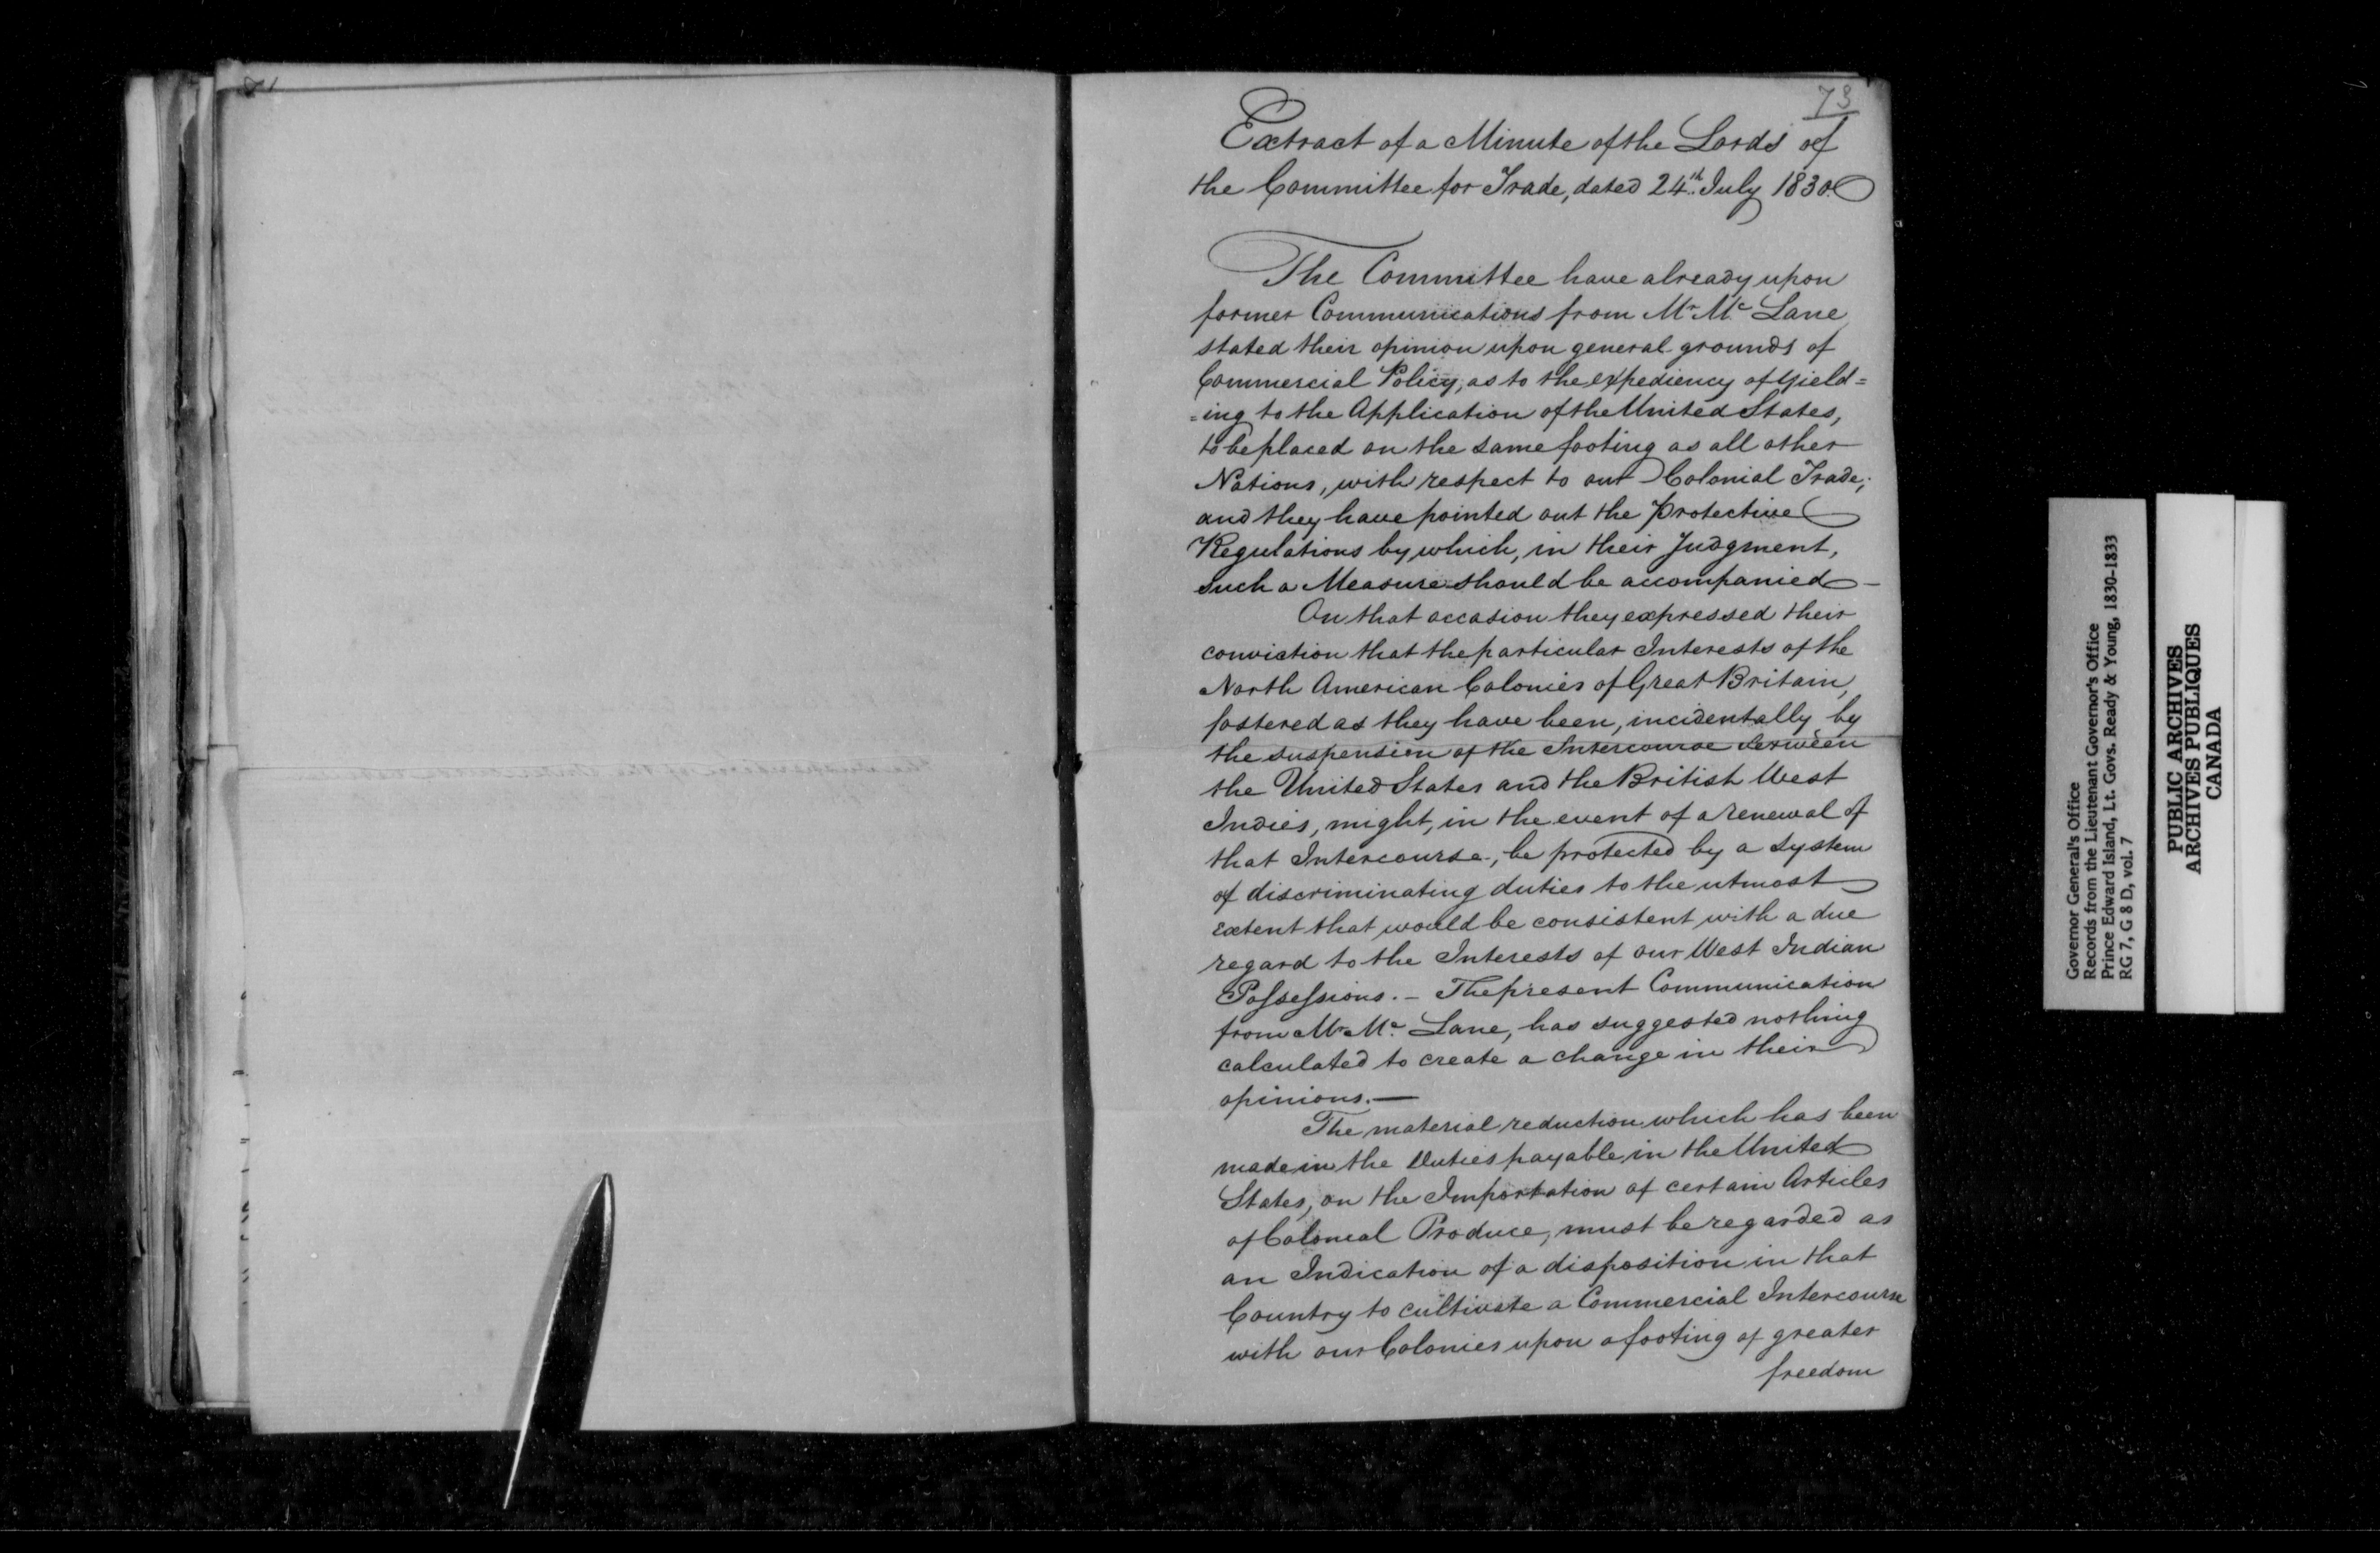 73
Extract of a Minute of the Lords of
the Committee for Trade, dated 24th. July 1830.
The Committee have already upon
former Communications from Mr. Mc. Lane
stated their opinion upon general grounds of
Commercial Policy, as to the expediency of yield=
=ing to the Application of the United States,
to be placed on the same footing as all other
Nations, with respect to our Colonial Trade;
and they have pointed out the Protective
Regulations by which, in their Judgment,
such a Measure should be accompanied –
On that occasion they expressed their
conviction that the particular Interests of the
North American Colonies of Great Britain,
fostered as they have been, incidentally by
the suspension of the Intercourse between
the United States and the British West
Indies, might, in the event of a renewal of
that Intercourse, be protected by a system
of discriminating duties to the utmost
extent that would be consistent with a due
regard to the Interests of our West Indian
Possessions. – The present Communication
from Mr. Mc. Lane, has suggested nothing
calculated to create a change in their
opinions. —
The material reduction which has been
made in the Duties payable in the United
States, on the Importation of certain Articles
of Colonial Produce, must be regarded as
an Indication of a disposition in that
Country to cultivate a Commercial Intercourse
with our Colonies upon a footing of greater
freedom
Governor General's Office
Records from the Lieutenant Governor's Office
Prince Edward Island, Lt. Govs. Ready & Young, 1830-1833
RG 7, G 8 D, vol. 7
PUBLIC ARCHIVES
ARCHIVES PUBLIQUES
CANADA